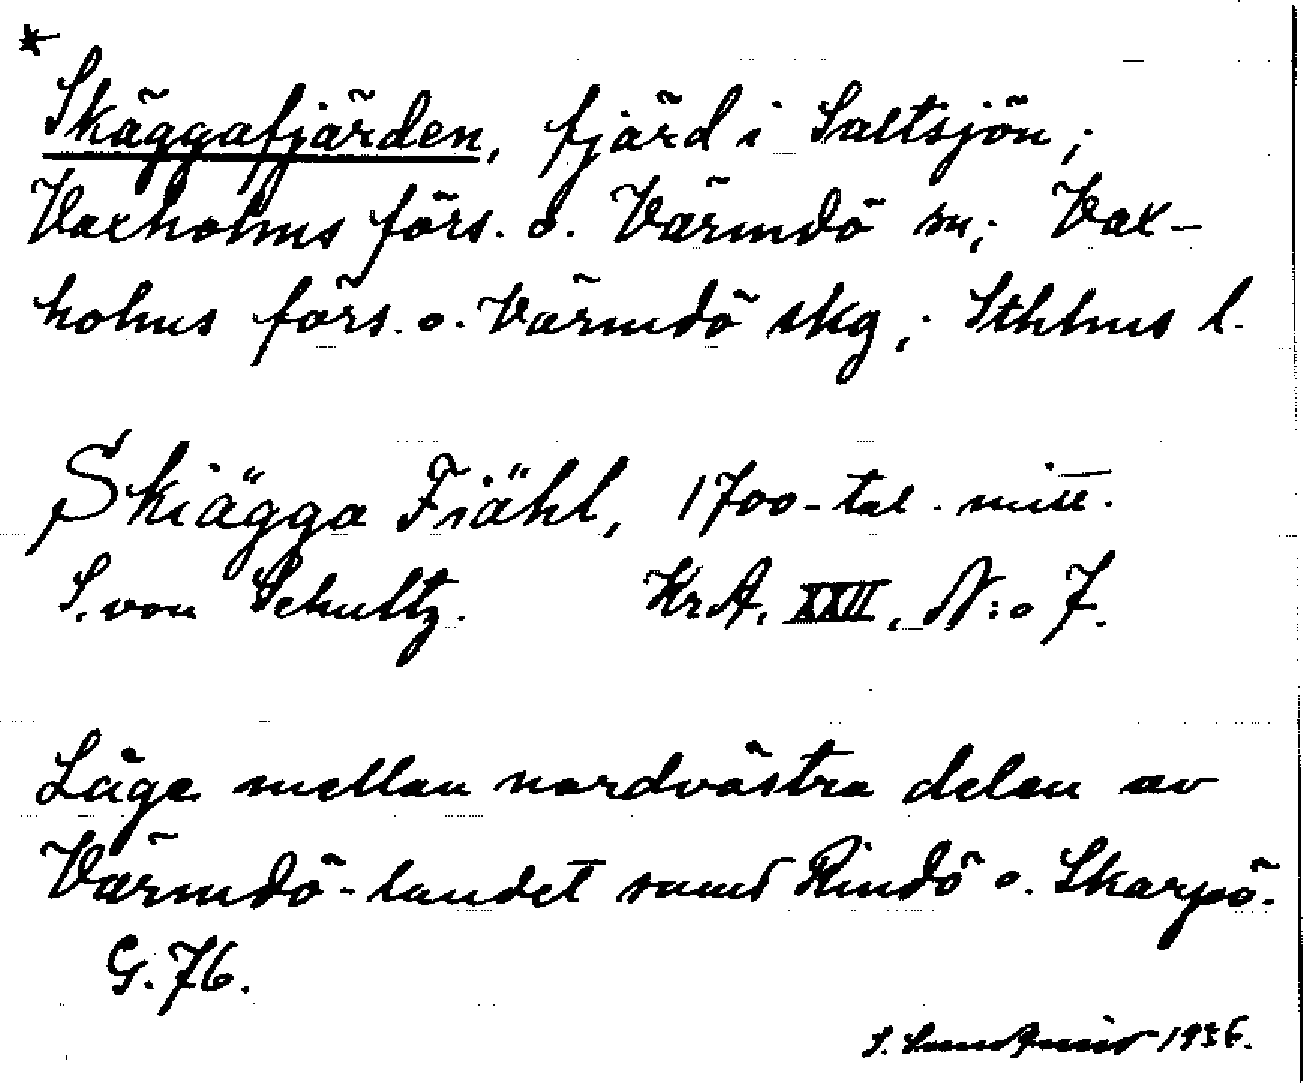 * Skäggafjärden, fjärd i Saltsjön;
Vaxholms förs. o. Värmdö sn; Vax-
holms förs. o. Värmdö skg; Sthlms l.
Skiägga Fiähl, 1700-tal. mitt.
S. von Schultz. KrA. XXII, N:o 7.
Läge mellan nordvästra delen av
Värmdö-landet samt Rindö o. Skarpö.
G. 76.
S. 1936.